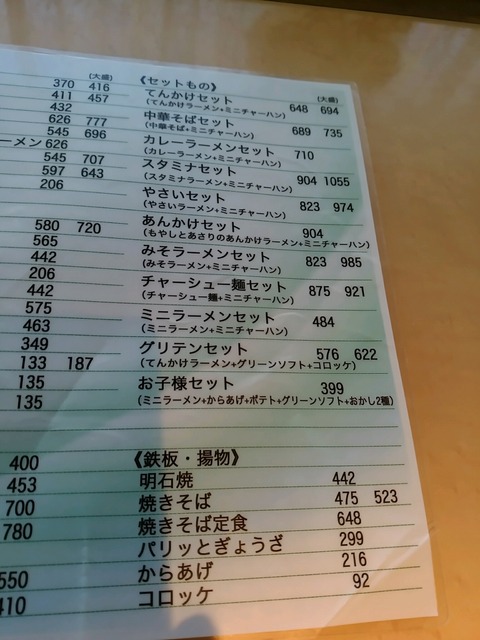 (大盛)
370 416
411 457
432
626 777
545 696
ーメン 626
545 707
597 643
206
580 720
565
442
206
442
575
463
349
133 187
135
135
400
453
700
780
550
410
《セットもの》
(大盛)
てんかけセット 648 694
(てんかけラーメン+ミニチャーハン)
中華そばセット 689 735
(中華そば+ミニチャーハン)
カレーラーメンセット 710
(カレーラーメン+ミニチャーハン)
スタミナセット 904 1055
(スタミナラーメン+ミニチャーハン)
やさいセット 823 974
(やさいラーメン+ミニチャーハン)
あんかけセット 904
(もやしとあさりのあんかけラーメン+ミニチャーハン)
みそラーメンセット 823 985
(みそラーメン+ミニチャーハン)
チャーシュー麺セット 875 921
(チャーシュー麺+ミニチャーハン)
ミニラーメンセット 484
(ミニラーメン+ミニチャーハン)
グリテンセット 576 622
(てんかけラーメン+グリーンソフト+コロッケ)
お子様セット 399
(ミニラーメン+からあげ+ポテト+グリーンソフト+おかし2種)
《鉄板・揚物》
明石焼 442
焼きそば 475 523
焼きそば定食 648
パリッとぎょうざ 299
からあげ 216
コロッケ 92